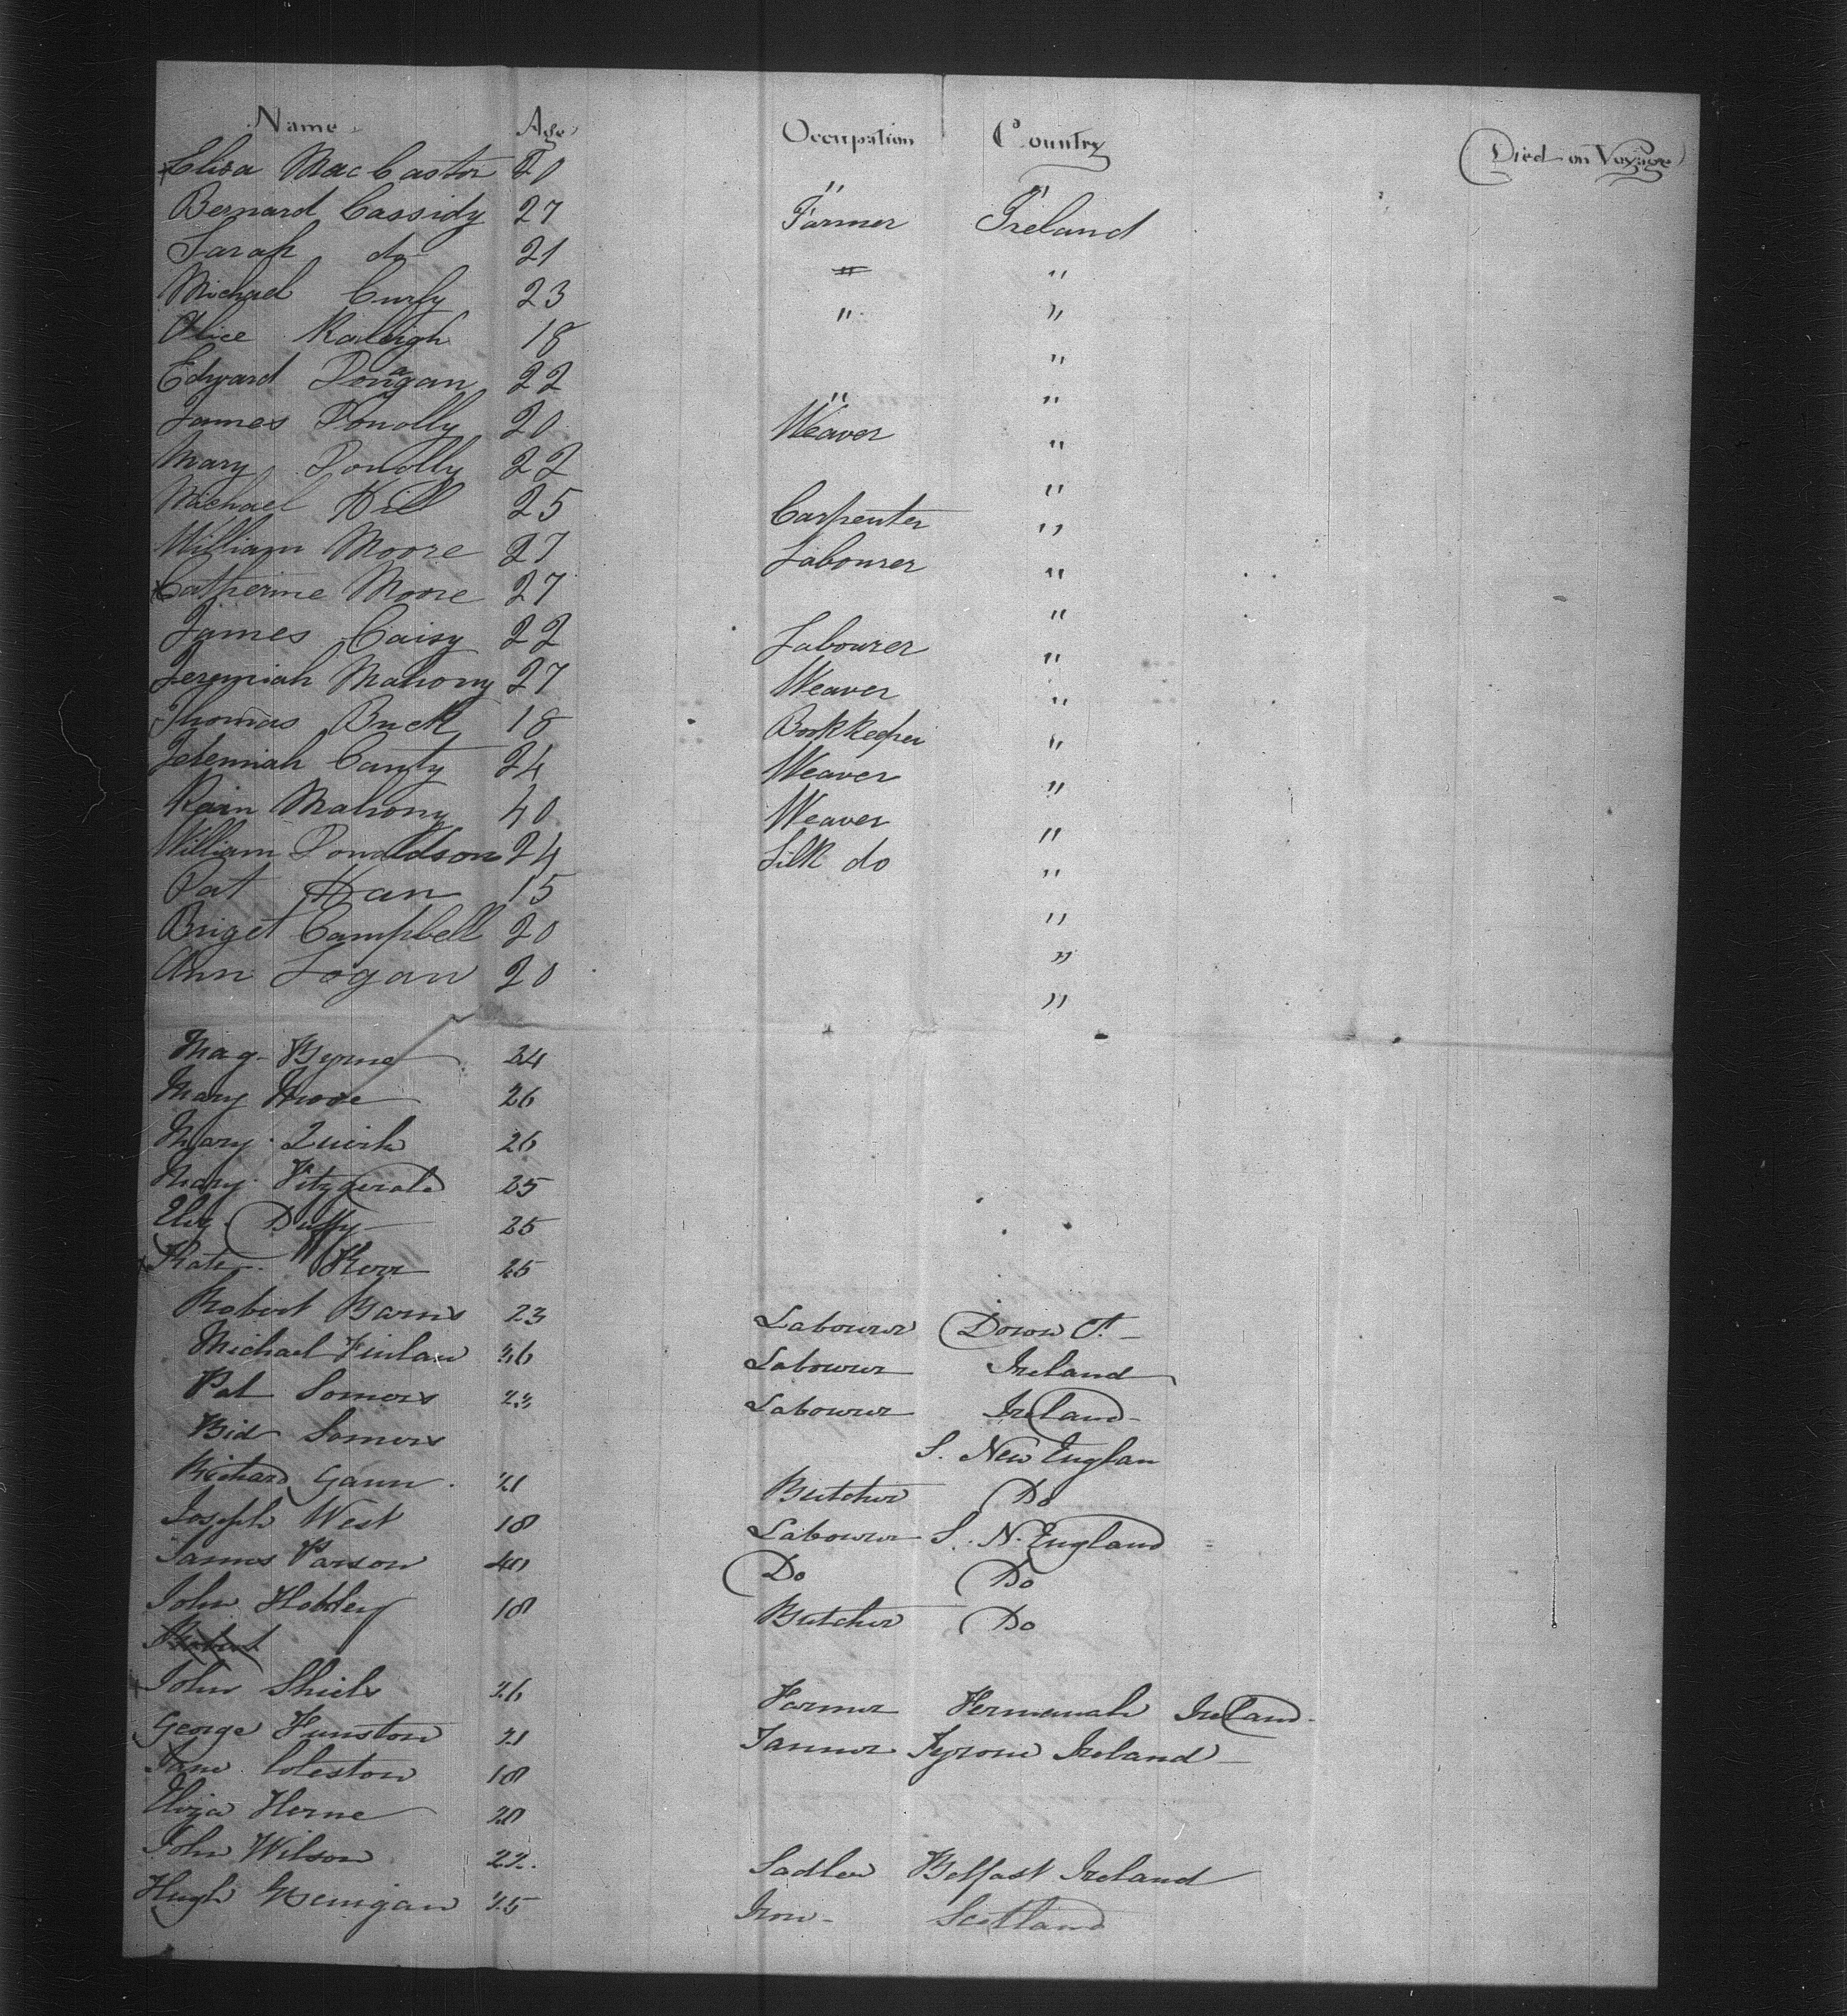 Name Age Occupation Country Died on Voyage
Eliza MacCastor 20 " "
Bernard Cassidy 27 Farmer Ireland
Sarah do 21 "
Michael Curly 23 " "
Alice Raleigh 18 "
Edward Dongan 22 " "
James Donolly 20 Weaver "
Mary Donolly 22 "
Michael Hill 25 Carpenter "
William Moore 27 Labourer "
Catherine Moore 27 "
James Caisy 22 Labourer "
Jeremiah Mahony 27 Weaver "
Thomas Buck 18 Bookkeeper "
Jeremiah Canty 24 Weaver "
Mahony 40 Weaver "
William Donaldson 24 Silk do "
Pat 15 "
Briget Campbell 20 "
Ann Logan 20 "
Mag Byrne 24
Mary 26
Mary Quirk 26
Mary Fitzgerald 25
Eliz. Duffy 25
Kate Kerr 25
Robert Barns 23 Labourer Down Ct.
Michael Finlan 36 Labourer Ireland
Pat Somers 23 Labourer Ireland
Bid Somers S. New Englan
Richard Gann 21 Butcher Do
Joseph West 18 Labourer S. N. England
James Parson 40 Do Do
John Hobley 18 Butcher Do
Robert
John Shiels 26 Farmer Fermanah Ireland
George Hunston 21 Tanner Tyrone Ireland
Jane Coleston 18
Eliza Herne 20
John Wilson 22 Sadler Belfast Ireland
Hugh 25 Iron Scotland